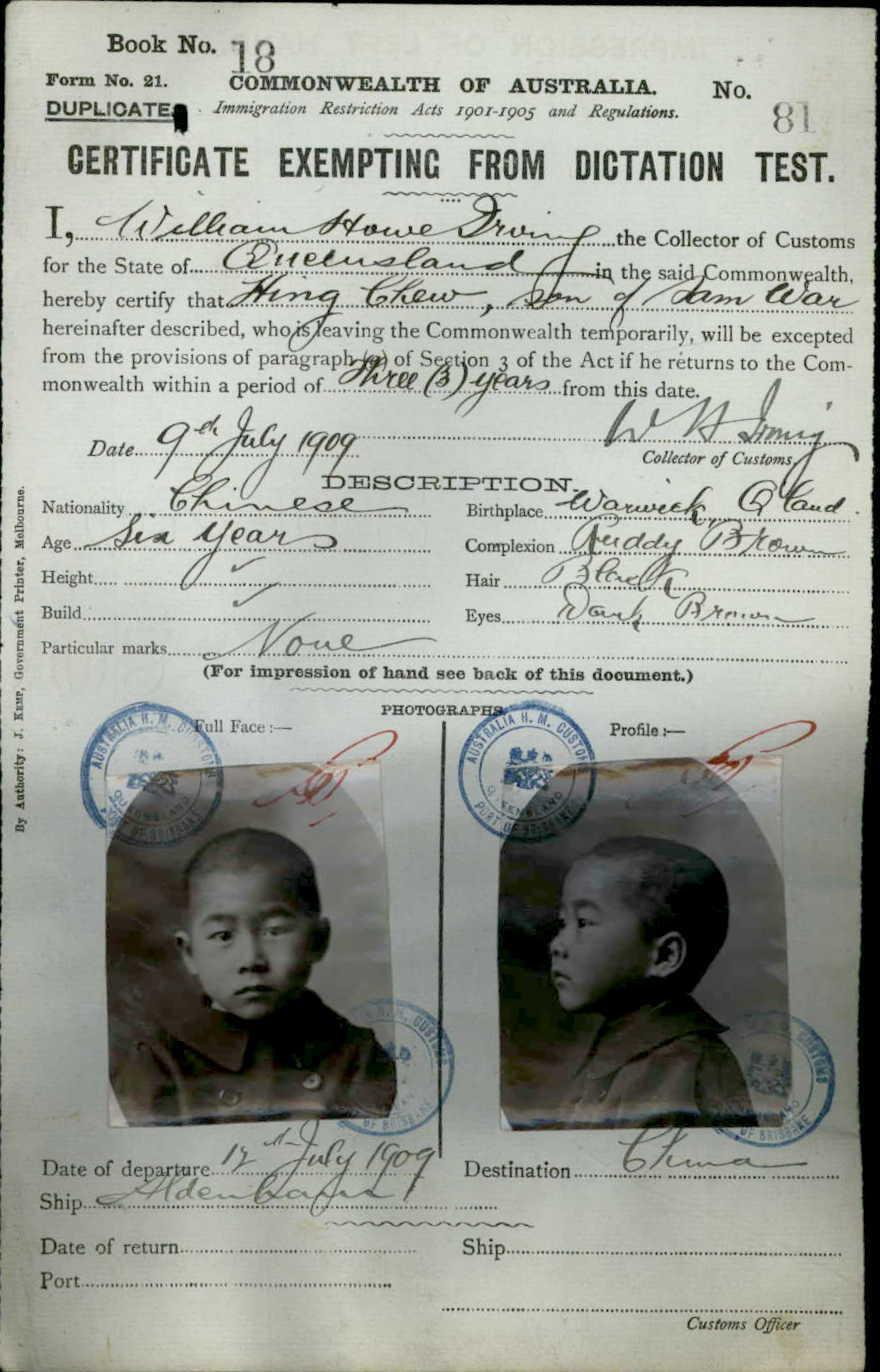 Book No. 18
Form No. 21. COMMONWEALTH OF AUSTRALIA. No. 81
DUPLICATE Immigration Restriction Acts 1901-1905 and Regulations.
CERTIFICATE EXEMPTING FROM DICTATION TEST.
I, William Howe Irving the Collector of Customs
for the State of Queensland in the said Commonwealth,
hereby certify that Hing Chew, son of Sam War
hereinafter described, who is leaving the Commonwealth temporarily, will be excepted
from the provisions of paragraph (a) of Section 3 of the Act if he returns to the Com-
monwealth within a period of Three (3) years from this date.
W H Irving
Date 9th July 1909
Collector of Customs.
DESCRIPTION.
Nationality Chinese Birthplace Warwick Qland.
Age Six Years Complexion Ruddy Brown
Height Hair Black
Build Eyes Dark Brown
Particular marks None
(For impression of hand see back of this document.)
PHOTOGRAPHS
Full Face :— Profile :—
AUSTRALIA H. M. CUSTOMS QUEENSLAND PORT OF BRISBANE
AUSTRALIA H. M. CUSTOMS QUEENSLAND PORT OF BRISBANE
CUSTOMS OF BRISBANE
CUSTOMS OF BRISBANE
Date of departure 12th July 1909 Destination China
Ship Aldenham
Date of return Ship
Port
Customs Officer
By Authority: J. KEMP, Government Printer, Melbourne.